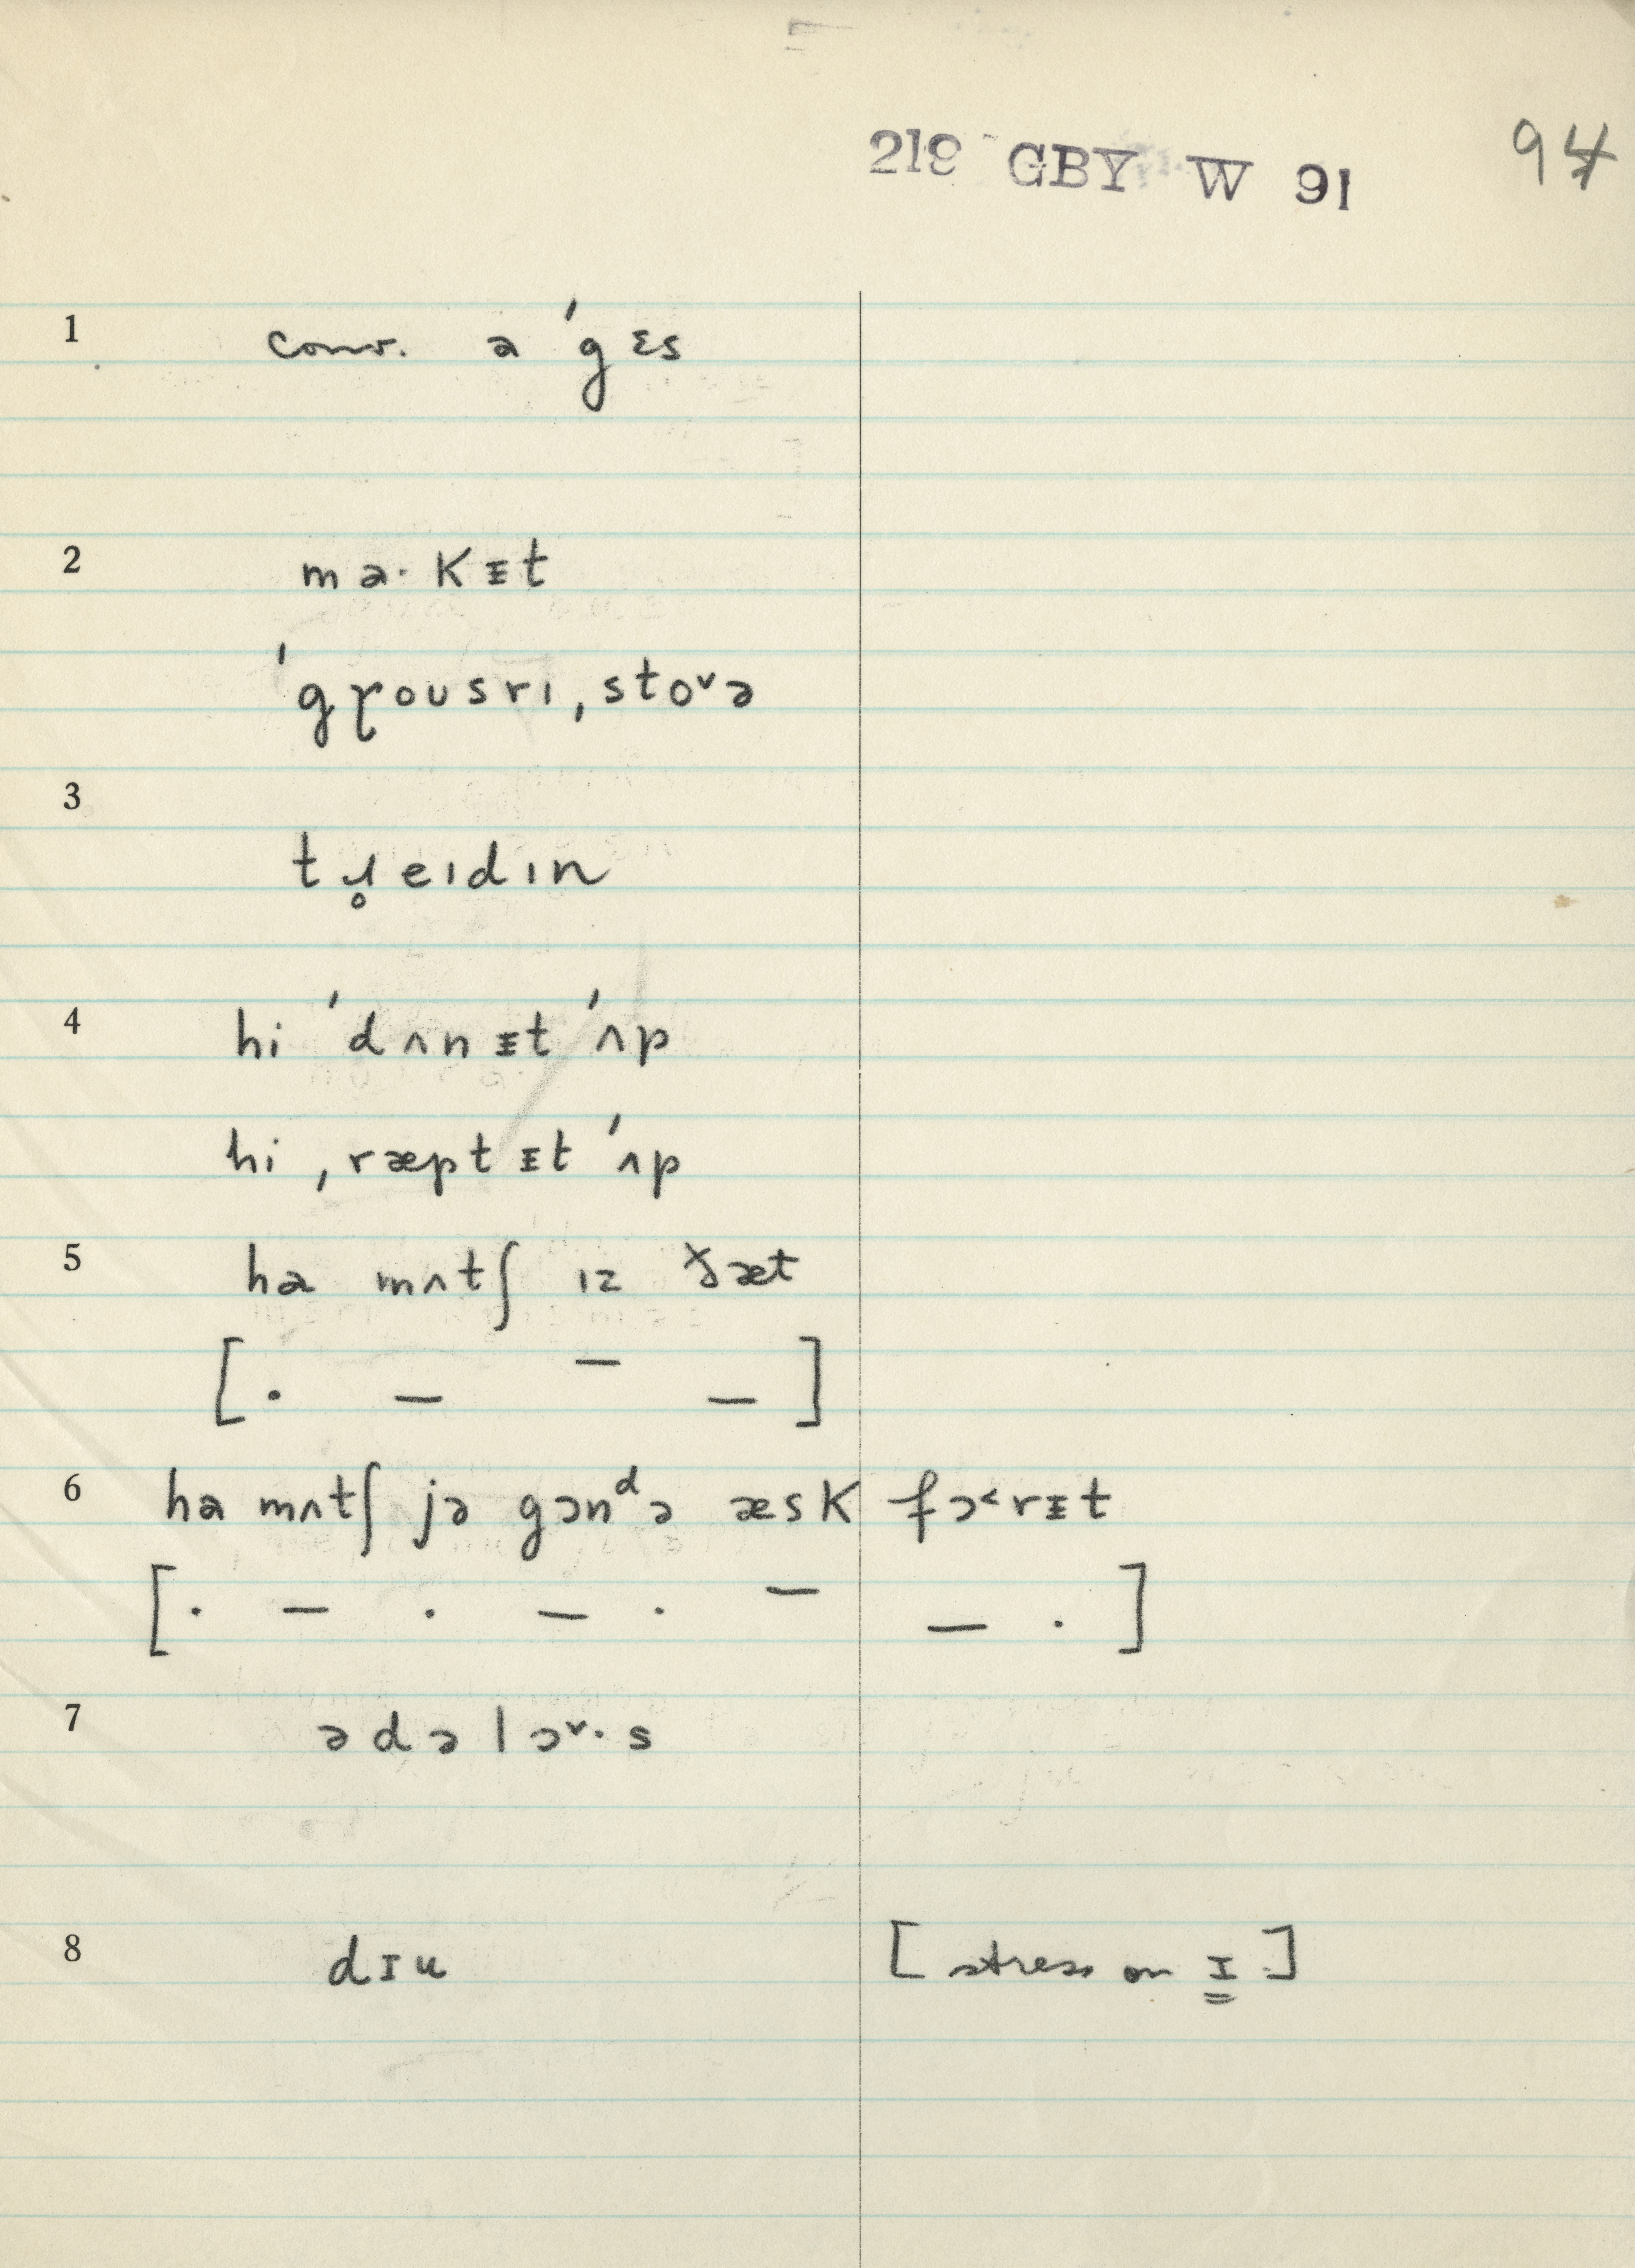 219 GBY W 91
94
1 conv. a ˈgɛs
2 ma· kᵻt
ˈgɽousrɪ ˌstoᵛə
3
tɹ̥eɪdɪn
4 hi ˈdʌnᵻt ˈʌp
hi ˌræptᵻt ˈʌp
5 ha mʌtʃ ɪz ðæt
[ · – – – ]
6 ha mʌtʃ jə gɔnᵈə æsk fɔ˂rᵻt
[ · – · – · – – · ]
7 ədəlɔᵛ·s
8 dɪu [ stress on ɪ ]